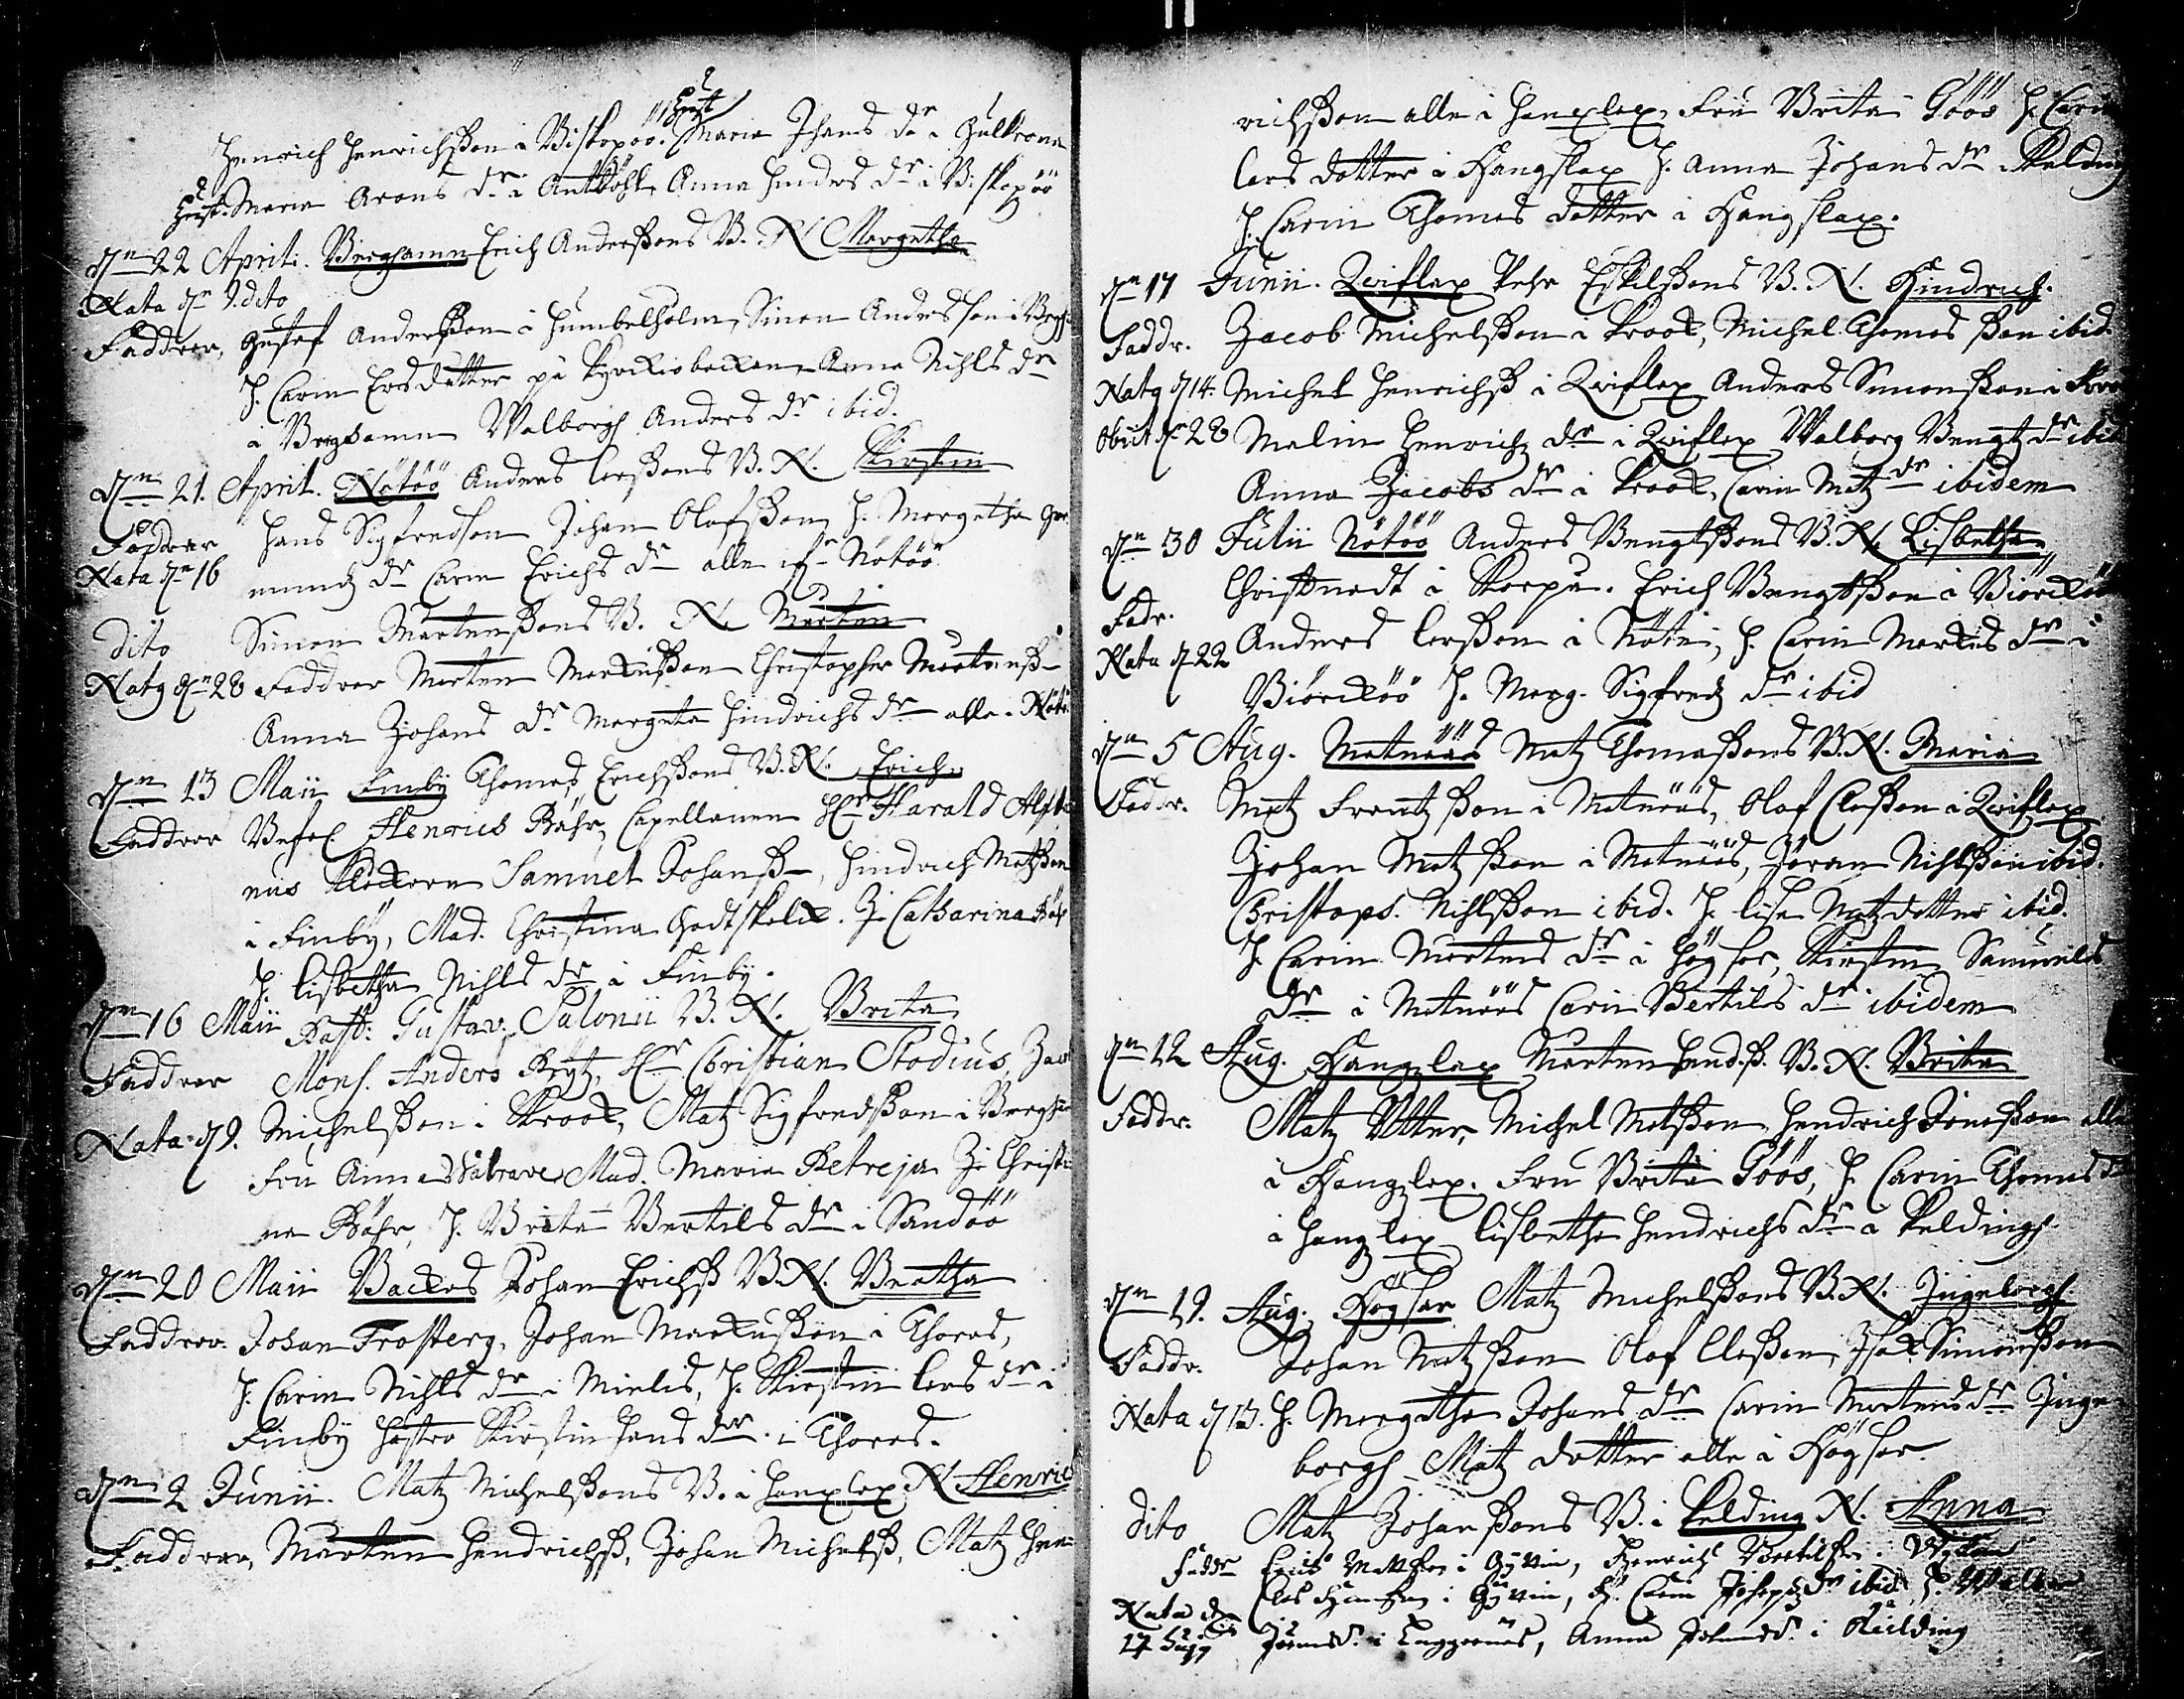 Hust.
Henrich Henrichßon i Biskopöö. Maria Johans dr i Gulkrona
Hust. Maria Arons dr i Anttböhle Anna Hindrs dr i Biskopöö
dn 22 Aprili. Berghamn Erich Anderßons B. N. Margetha
Nata dn 9. dito
Faddrar, Gustaf Anderßon i Humbelholm, Simon Andersson i Bergh
H. Carin Ersdotter på Kyrckiobacken Anna Nihls dr
i Berghamn Walborgh Anders dr ibid.
dn 21. April. Nötöö Anders Larßons B. N. Kirstin
Faddrar Hans Sigfredson Johan Olofßon H. Margetha
Nata dn 16 mundz dr Carin Erichs dr alle ifr Nötöö
dito Simon Mårtenßons B. N. Mårten
Natq dn 28 Faddrar Mårten Markusßon Christopher Mårtenß
Anna Johans dr Margeta Hindrichs dr alle i Nötö
dn 13 Maii Finby Thomas Erichßons B. N. Erich
Faddrar Befal Henrics Bähr, Capellanen Hr Harald Alft
nius Klockaren Samuel Johanß, Hindrich Matßon
i Finby, Mad. Christina Godtskalk. J. Catharina Bähr
H. Lisbetha Nihls dr i Finby.
dn 16 Maii Past: Gustav: Salonii B. N. Brita
Faddrar Mons. Anders Beytz, Hr Christian Stodius, Jac
Nata d 9. Michelßon i Krook, Matz Sigfredßon i Bergham
Fru Anna Mad. Maria Petreja J. Christi
na Bähr, H. Brita Bertils dr i Sandöö
dn 20 Maii Backas Johan Erichß B. N. Beatha
Faddrar. Johan Frosterg, Johan Markusßon i Thoras,
H. Carin Nihls dr i Mielis, H. Kirstin Lars dr i
Finby Hustro Kirstin Hans dr i Thoras.
dn 2 Junii. Matz Michelßons B. i Hanxlax N Henric
Faddrar, Mårten Hendrichß, Johan Michelß, Matz Hen
richßon alle i Hanxlax, Fru Brita Göös H. Carin
Lars dotter i Hangslax H. Anna Johans dr i Pelding
H. Carin Thomas dotter i Hangslax.
dn 17 Junii. Qviflax Pehr Eskilßons B. N. Hindrich.
Faddr. Jacob Michelßon i Krook, Michel Thomasßon ibid
Natq d 14. Michel Henrichß i Qviflax Anders Simonßon i Kro
Obiit dn 28 Malin Henrichz dr i Qviflax Walborg Bengtz dr ibid
Anna Jacobs dr i Krook, Carin Matz dr ibidem
dn 30 Julii Nötöö Anders Bengtßons B. N. Lisbetha
Christnadt i Korpu. Erich Bengtßon i Biörcköö
Fadr.
Nata d 22 Anders Larßon i Nötö, H. Carin Markus dr i
Biörcköö H. Marg. Sigfredz dr ibid
dn 5 Aug. Matnääs Matz Thomasßons B. N. Maria
Faddr. Matz Frantzßon i Matnääs, Olof Claßon i Qviflax
Johan Matzßon i Matnääs, Jöran Nihlßon ibid.
Christoph. Nihlßon ibid. H. Lisa Matzdotter ibid.
H. Carin Mårtens dr i Högsar, Kirstin Samuels
dr i Matnääs Carin Bertils dr ibidem
dn 12 Aug. Hangslax Mårten Hend.ß. B. N. Brita
Faddr. Matz Utter, Michel Matßon, Hendrich Jönsßon alle
i Hangslax. Fru Brita Göös, H. Carin Thomas dr
i Hangslax Lisbetha Hendrichs dr i Peldingh
dn 19. Aug. Högsar Matz Michelßons B. N. Ingeborgh.
Faddr. Johan Matzßon Olof Claßon, Isak Simonßon
Nata d 13. H. Margetha Johans dr Carin Mårtens dr Inge
borgh Matz dotter alle i Högsar.
dito Matz Johanßons B. i Pelding N. Anna
Faddr Erich Mattßon i Gyttia, Henrich Bertilßon i
Nata d Clas i Gyttia, H. Carin Josephz dr ibid, H. Walbor
17 Jörensd. i Laggarnäs, Anna Johansd. i Pielding